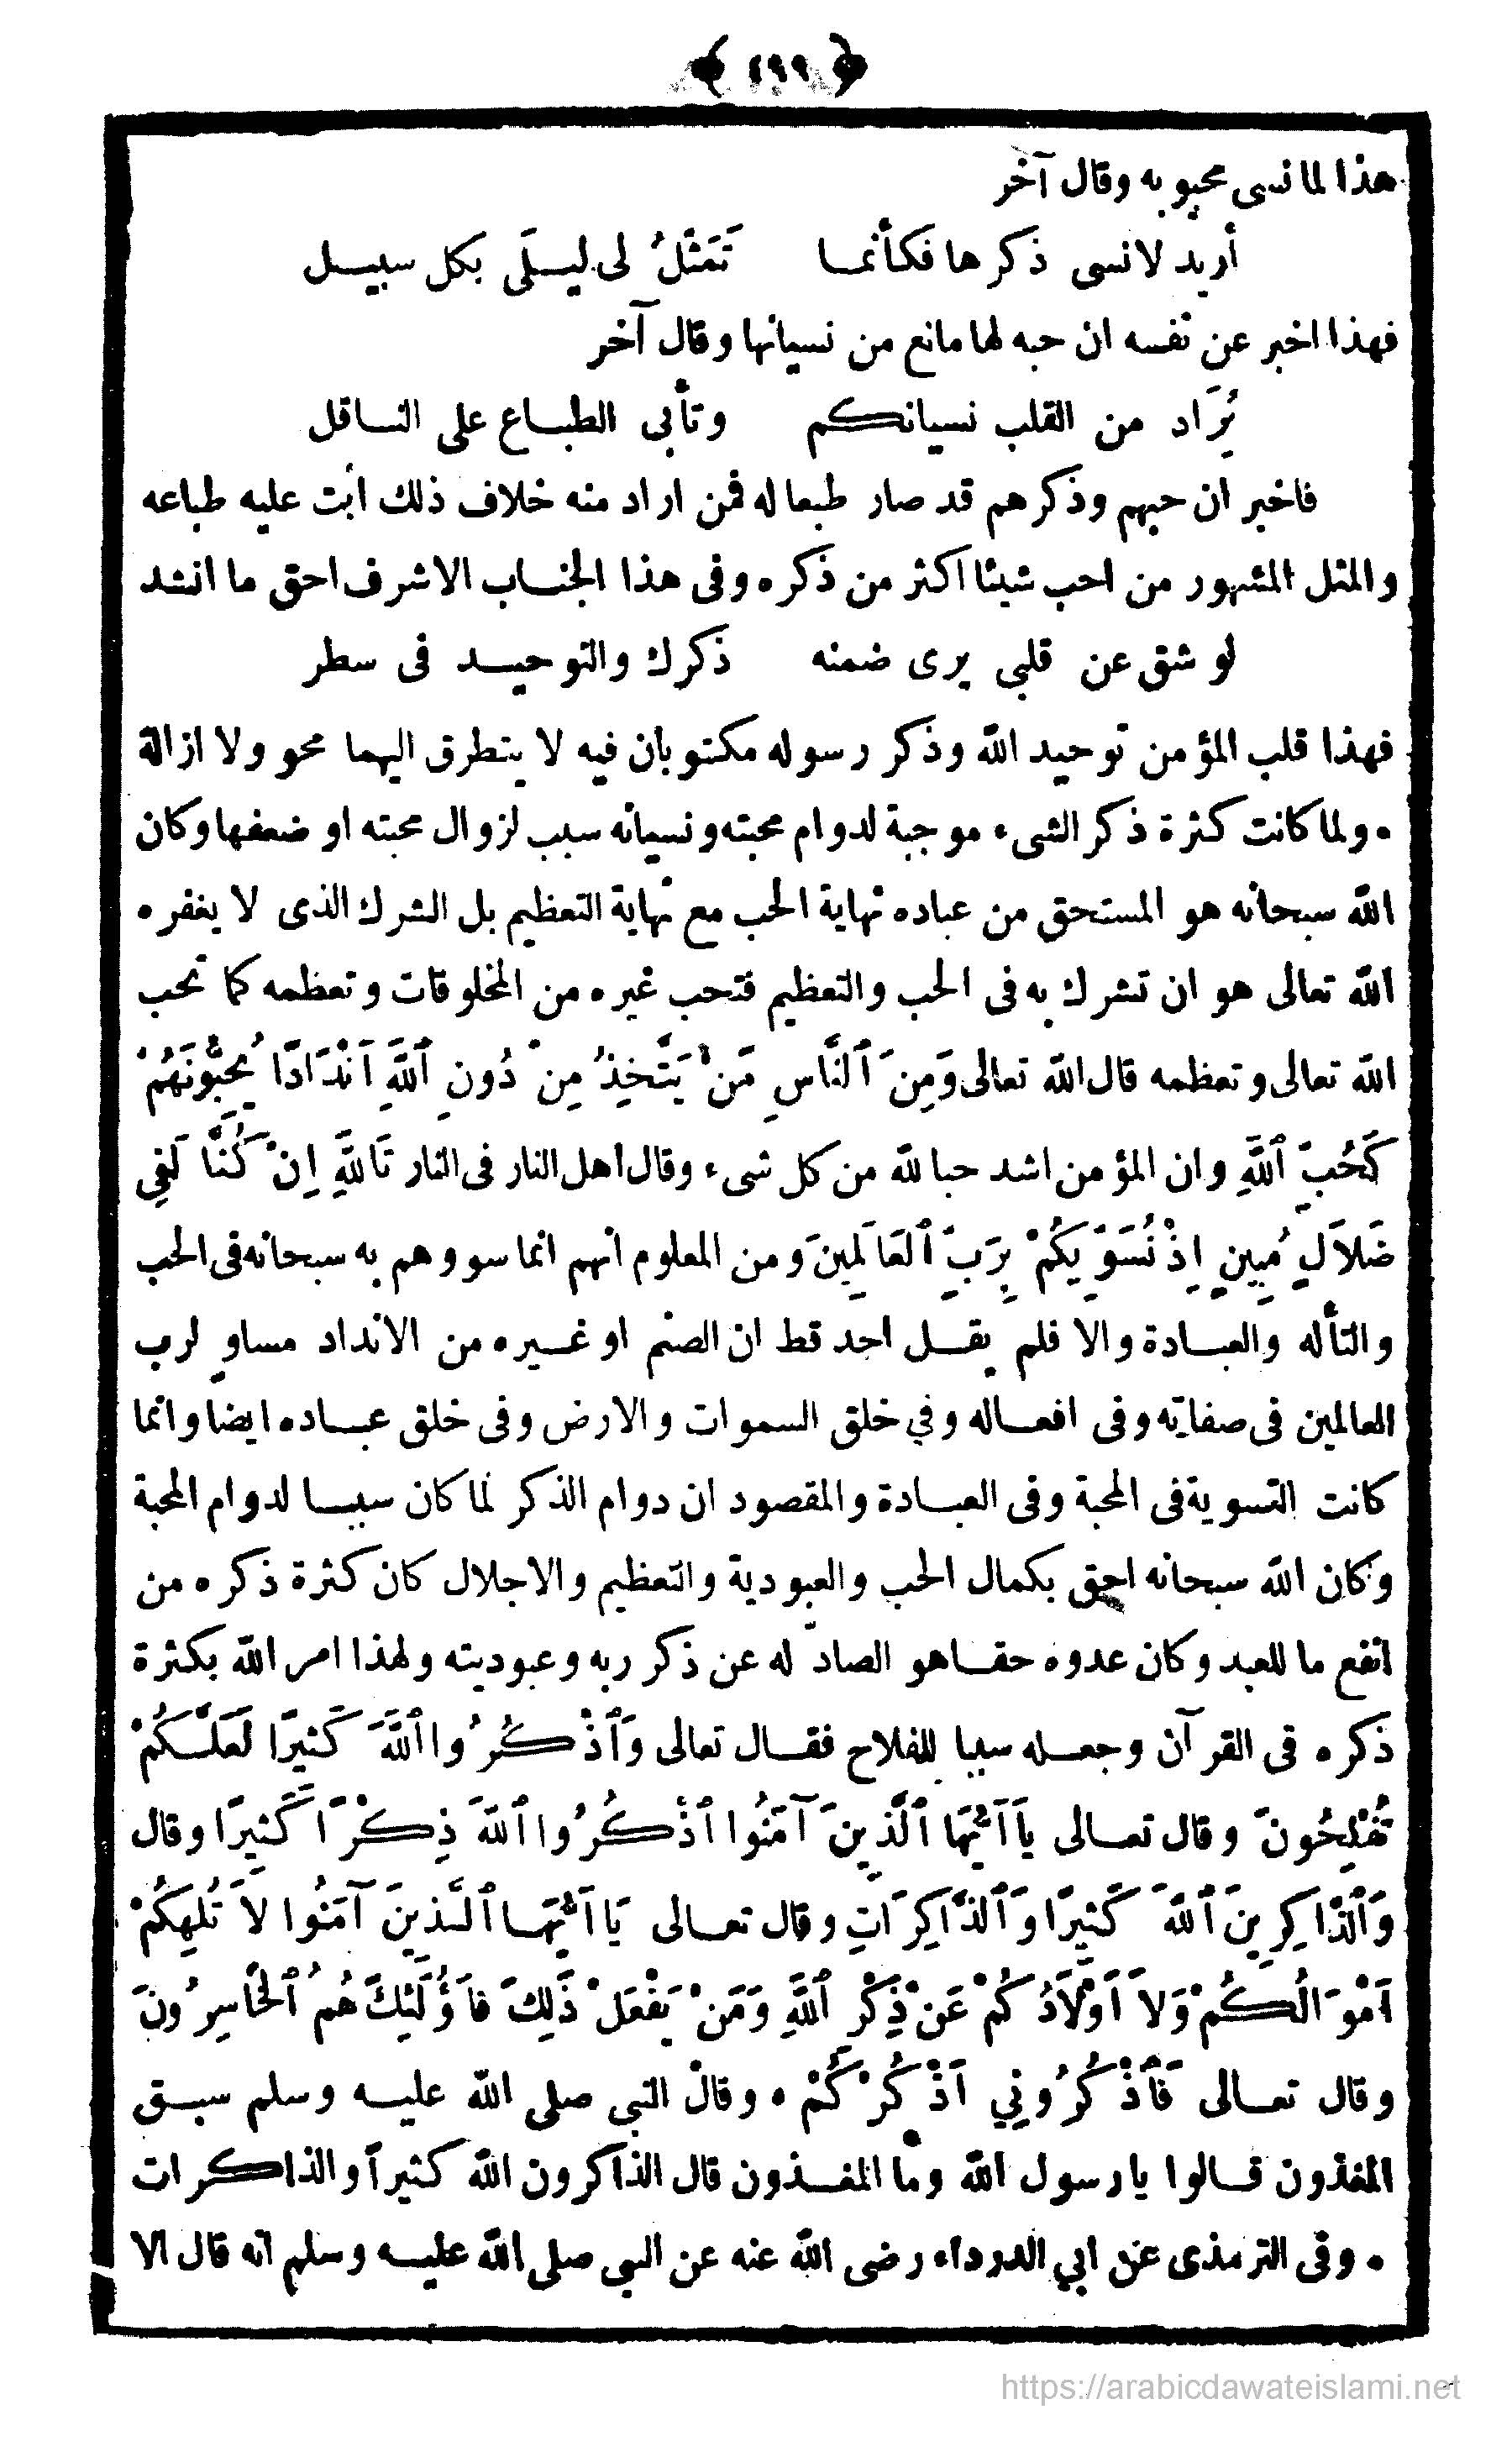 ﴿ ٤٩٩ ﴾
هذا لما نسى محبوبه وقال آخر
أريد لانسى ذكرها فكأنما تَمَثَّلُ لى ليلَى بكل سبيل
فهذا اخبر عن نفسه ان حبه لها مانع من نسيانها وقال آخر
يُرَاد من القلب نسيانكم وتأبى الطباع على الناقل
فاخبر ان حبهم وذكرهم قد صار طبعا له فمن اراد منه خلاف ذلك أبت عليه طباعه
والمثل المشهور من احب شيئا اكثر من ذكره وفى هذا الجناب الاشرف احق ما انشد
لو شق عن قلبى يرى ضمنه ذكرك والتوحيد فى سطر
فهذا قلب المؤمن توحيد الله وذكر رسوله مكتوبان فيه لا يتطرق اليهما محو ولا ازالة
٥ ولما كانت كثرة ذكر الشىء موجبة لدوام محبته ونسيانه سبب لزوال محبته او ضعفها وكان
الله سبحانه هو المستحق من عباده نهاية الحب مع نهاية التعظيم بل الشرك الذى لا يغفره
الله تعالى هو ان تشرك به فى الحب والتعظيم فتحب غيره من المخلوقات وتعظمه كما تحب
الله تعالى وتعظمه قال الله تعالى وَمِنَ ٱلنَّاسِ مَنْ يَتَّخِذُ مِنْ دُونِ ٱللَّهِ اَنْدَادًا يُحِبُّونَهُمْ
كَحُبِّ ٱللَّهِ وان المؤمن اشد حبا لله من كل شىء وقال اهل النار فى النار تَاللَّهِ اِنْ كُنَّا لَفِي
ضَلاَلٍ مُبِينٍ اِذْ نُسَوِّيكُمْ بِرَبِّ ٱلعَالَمِينَ ومن المعلوم انهم انما سووهم به سبحانه فى الحب
والتأله والعبادة والا فلم يقل احد قط ان الصنم او غيره من الانداد مساوٍ لرب
العالمين فى صفاته وفى افعاله وفي خلق السموات والارض وفى خلق عباده ايضا وانما
كانت التسوية فى المحبة وفى العبادة والمقصود ان دوام الذكر لما كان سببا لدوام المحبة
وكان الله سبحانه احق بكمال الحب والعبودية والتعظيم والاجلال كان كثرة ذكره من
انفع ما للعبد وكان عدوه حقا هو الصادّ له عن ذكر ربه وعبوديته ولهذا امر الله بكثرة
ذكره فى القرآن وجعله سببا للفلاح فقال تعالى وَٱذْكُرُوا ٱللَّهَ كَثِيرًا لَعَلَّكُمْ
تُفْلِحُونَ وقال تعالى يَا اَيُّهَا ٱلَّذِينَ آمَنُوا ٱذْكُرُوا ٱللَّهَ ذِكْرًا كَثِيرًا وقال
وَٱلذَّاكِرِينَ ٱللَّهَ كَثِيرًا وَٱلذَّاكِرَاتِ وقال تعالى يَا اَيُّهَا ٱلَّذِينَ آمَنُوا لاَ تُلْهِكُمْ
اَمْوَالُكُمْ وَلاَ اَوْلاَدُكُمْ عَنْ ذِكْرِ ٱللَّهِ وَمَنْ يَفْعَلْ ذَلِكَ فَاُولَئِكَ هُمُ ٱلْخَاسِرُونَ
وقال تعالى فَٱذْكُرُونِي اَذْكُرْكُمْ ٥ وقال النبى صلى الله عليه وسلم سبق
المفذون قالوا يا رسول الله وما المفذون قال الذاكرون الله كثيراً والذاكرات
٥ وفى الترمذى عن ابي الدرداء رضى الله عنه عن النبى صلى الله عليه وسلم انه قال الا
https://arabicdawateislami.net